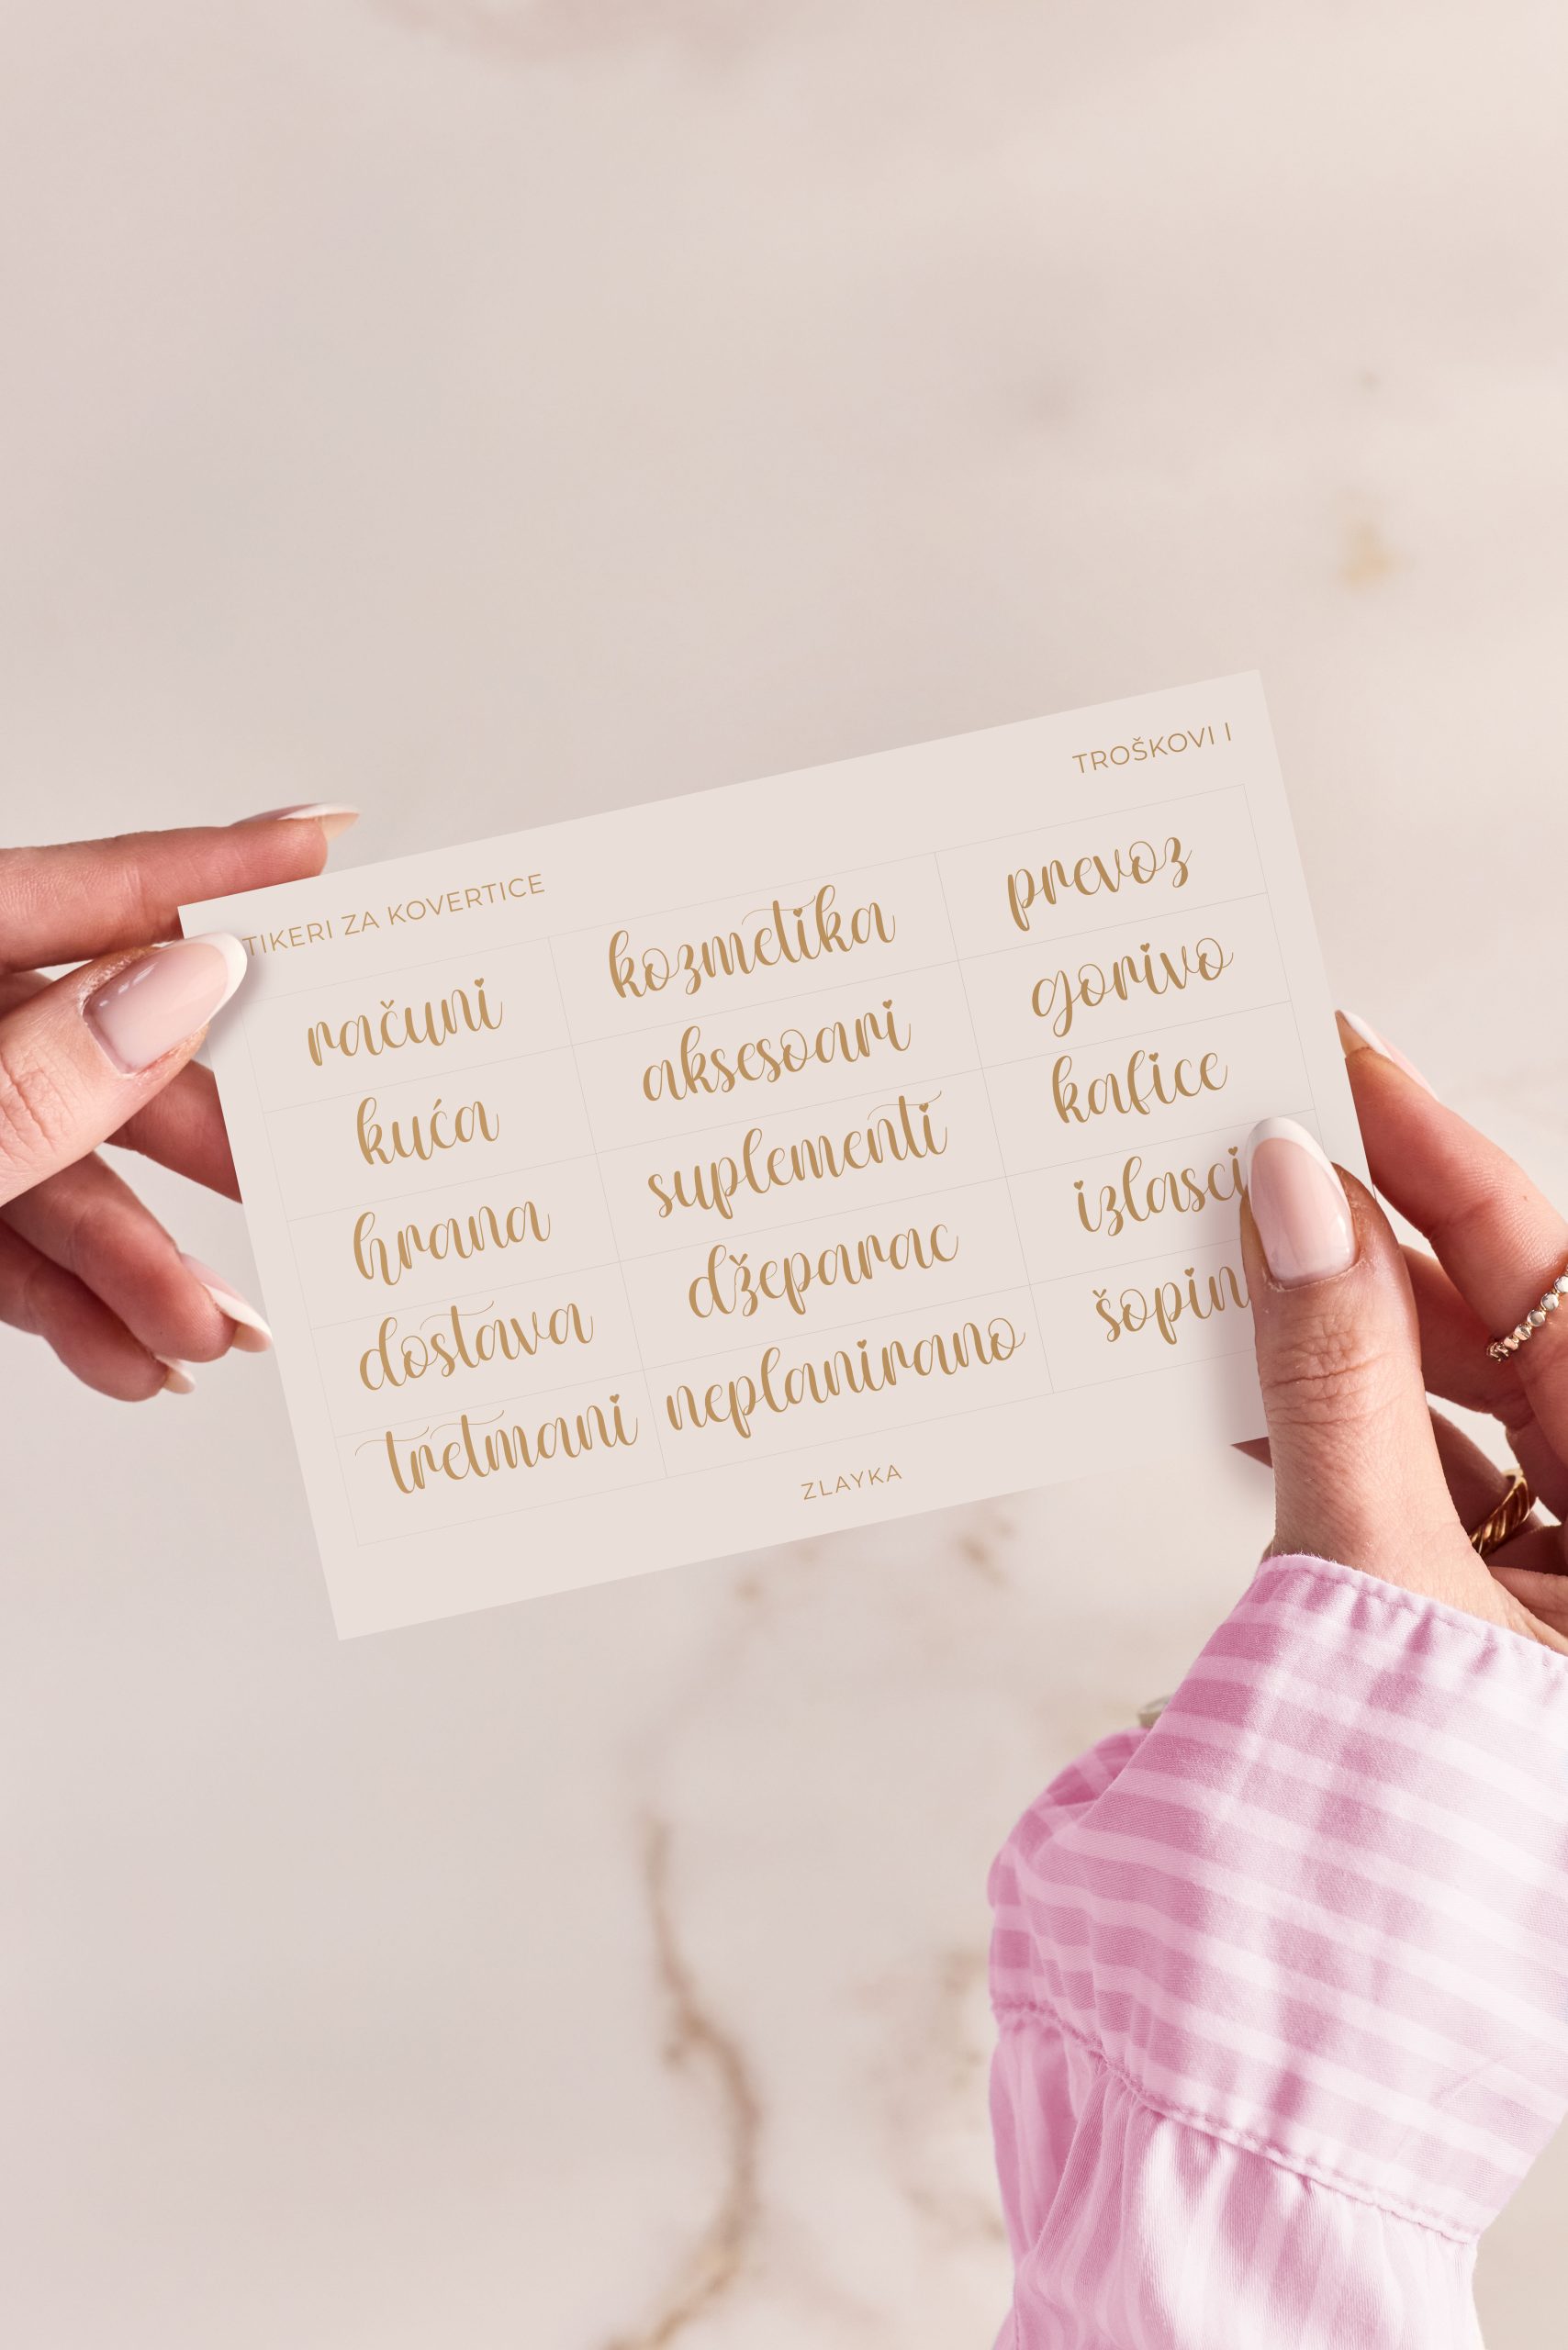 TIKERI ZA KOVERTICE
TROŠKOVI I
računi kozmetika prevoz
kuća aksesoari gorivo
hrana suplementi kafice
dostava džeparac izlasci
tretmani neplanirano šopin
ZLAYKA